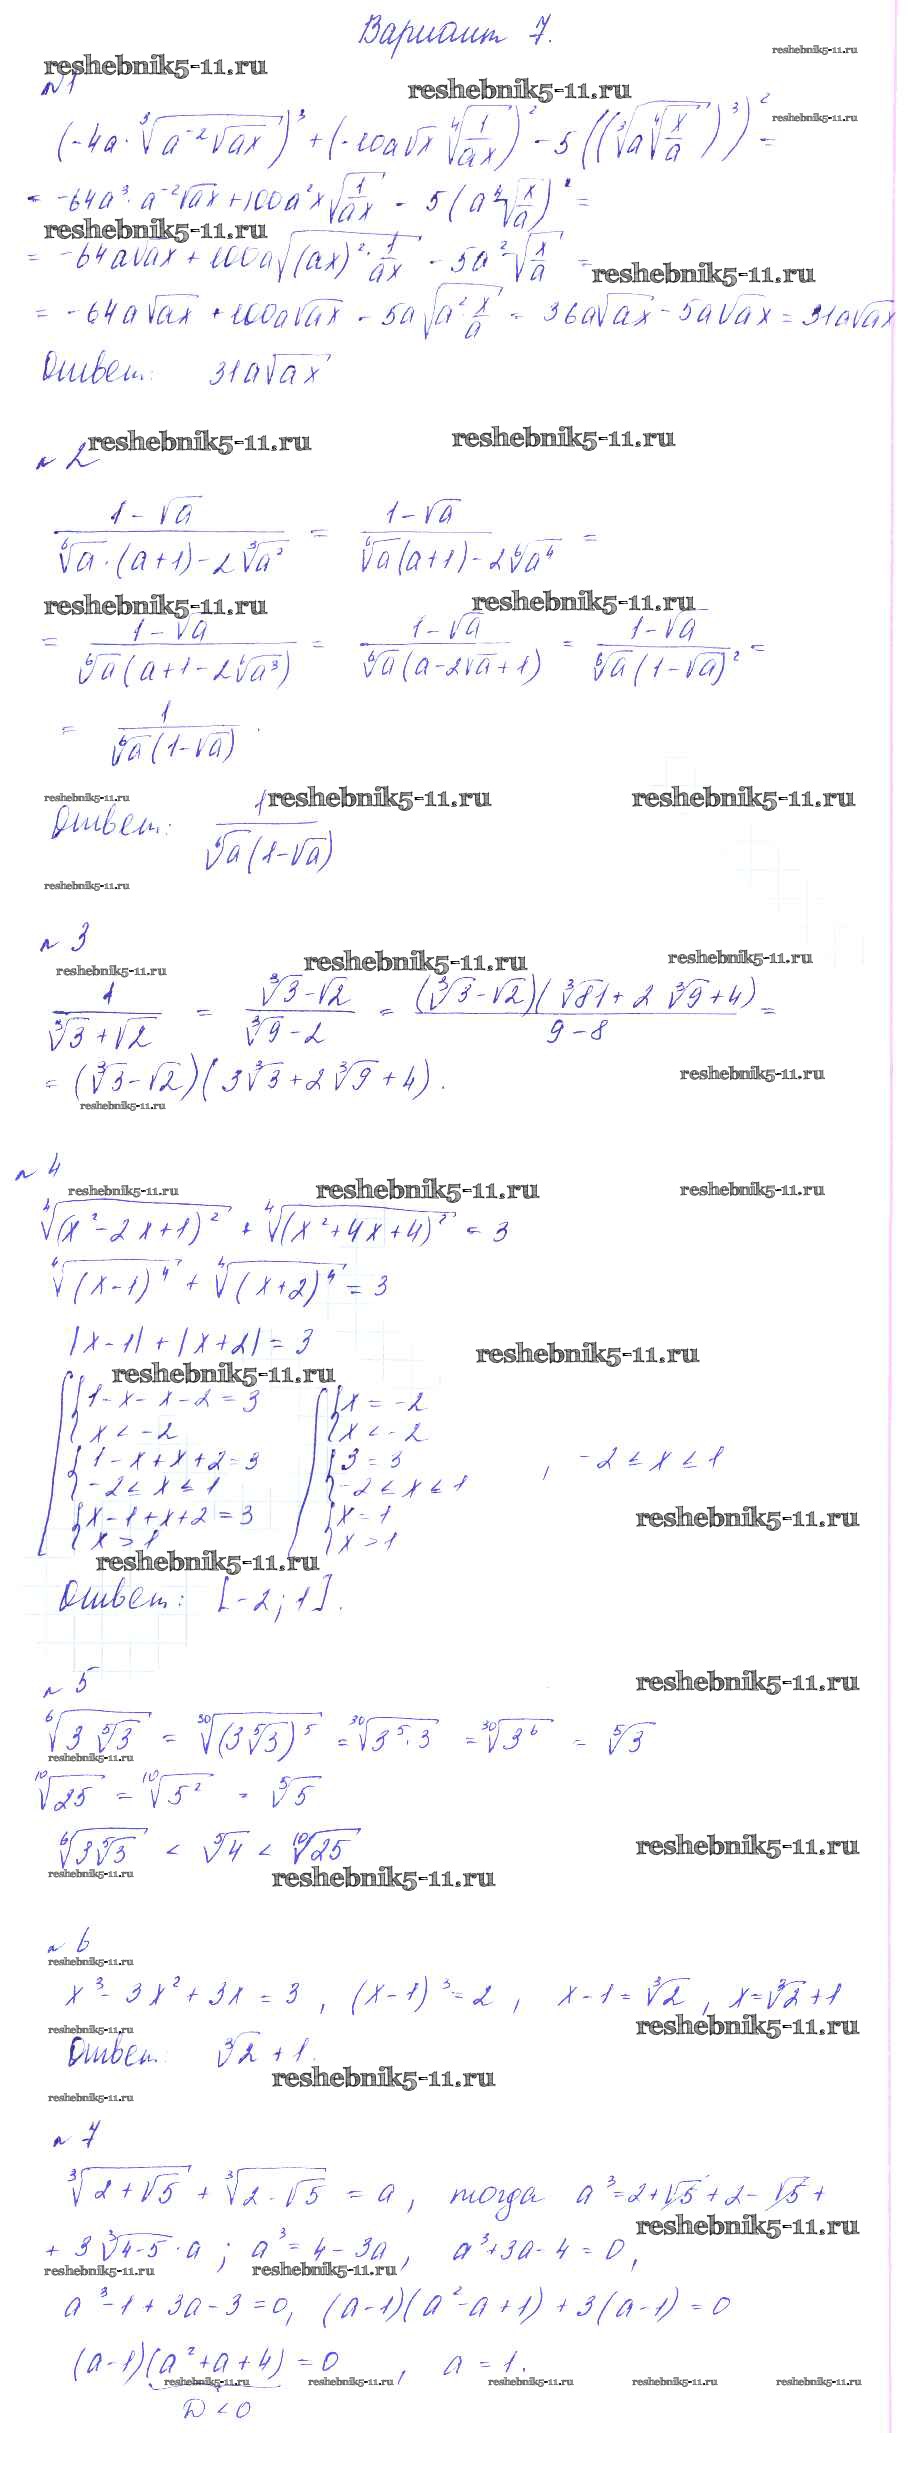 Вариант 7.
reshebnik5-11.ru
reshebnik5-11.ru
№1
reshebnik5-11.ru
reshebnik5-11.ru
(-4a · ∛(a⁻²√(ax)))³ + (-10a√x ∜(1/(ax)))² - 5((∛(a∜(x/a)))³)² =
= -64a³ · a⁻²√(ax) + 100a²x√(1/(ax)) - 5(a∜(x/a))² =
reshebnik5-11.ru
= -64a√(ax) + 100a√((ax)² · 1/(ax)) - 5a²√(x/a) =
reshebnik5-11.ru
= -64a√(ax) + 100a√(ax) - 5a√(a² x/a) = 36a√(ax) - 5a√(ax) = 31a√(ax)
Ответ: 31a√(ax)
reshebnik5-11.ru
reshebnik5-11.ru
№2
(1-√a)/(⁶√a · (a+1) - 2∛a²) = (1-√a)/(⁶√a(a+1) - 2⁶√a⁴) =
reshebnik5-11.ru
reshebnik5-11.ru
= (1-√a)/(⁶√a(a+1-2⁶√a³)) = (1-√a)/(⁶√a(a-2√a+1)) = (1-√a)/(⁶√a(1-√a)²) =
= 1/(⁶√a(1-√a)).
reshebnik5-11.ru
reshebnik5-11.ru
reshebnik5-11.ru
Ответ: 1/(⁶√a(1-√a))
reshebnik5-11.ru
№3
reshebnik5-11.ru
reshebnik5-11.ru
reshebnik5-11.ru
1/(∛3+√2) = (∛3-√2)/(∛9-2) = (∛3-√2)(∛81+2∛9+4)/(9-8) =
= (∛3-√2)(3∛3+2∛9+4).
reshebnik5-11.ru
reshebnik5-11.ru
№4
reshebnik5-11.ru
reshebnik5-11.ru
reshebnik5-11.ru
∜((x²-2x+1)²) + ∜((x²+4x+4)²) = 3
∜((x-1)⁴) + ∜((x+2)⁴) = 3
|x-1| + |x+2| = 3
reshebnik5-11.ru
reshebnik5-11.ru
1-x-x-2=3 x=-2
x<-2 x<-2
1-x+x+2=3 3=3 , -2≤x≤1
-2≤x≤1 -2≤x≤1
x-1+x+2=3 x=1
reshebnik5-11.ru
x>1 x>1
reshebnik5-11.ru
Ответ: [-2;1].
№5
reshebnik5-11.ru
⁶√(3⁵√3) = ³⁰√((3⁵√3)⁵) = ³⁰√(3⁵·3) = ³⁰√(3⁶) = ⁵√3
reshebnik5-11.ru
¹⁰√25 = ¹⁰√5² = ⁵√5
⁶√(3⁵√3) < ⁵√4 < ¹⁰√25
reshebnik5-11.ru
reshebnik5-11.ru
reshebnik5-11.ru
№6
reshebnik5-11.ru
x³-3x²+3x = 3, (x-1)³=2, x-1=∛2, x=∛2+1
reshebnik5-11.ru
reshebnik5-11.ru
Ответ: ∛2+1.
reshebnik5-11.ru
reshebnik5-11.ru
№7
∛(2+√5) + ∛(2-√5) = a, тогда a³=2+√5+2-√5+
reshebnik5-11.ru
+ 3∛(4-5)·a; a³=4-3a, a³+3a-4=0,
reshebnik5-11.ru
reshebnik5-11.ru
a³-1+3a-3=0, (a-1)(a²-a+1)+3(a-1)=0
(a-1)(a²+a+4)=0, a=1.
reshebnik5-11.ru
reshebnik5-11.ru
reshebnik5-11.ru
reshebnik5-11.ru
reshebnik5-11.ru
D<0